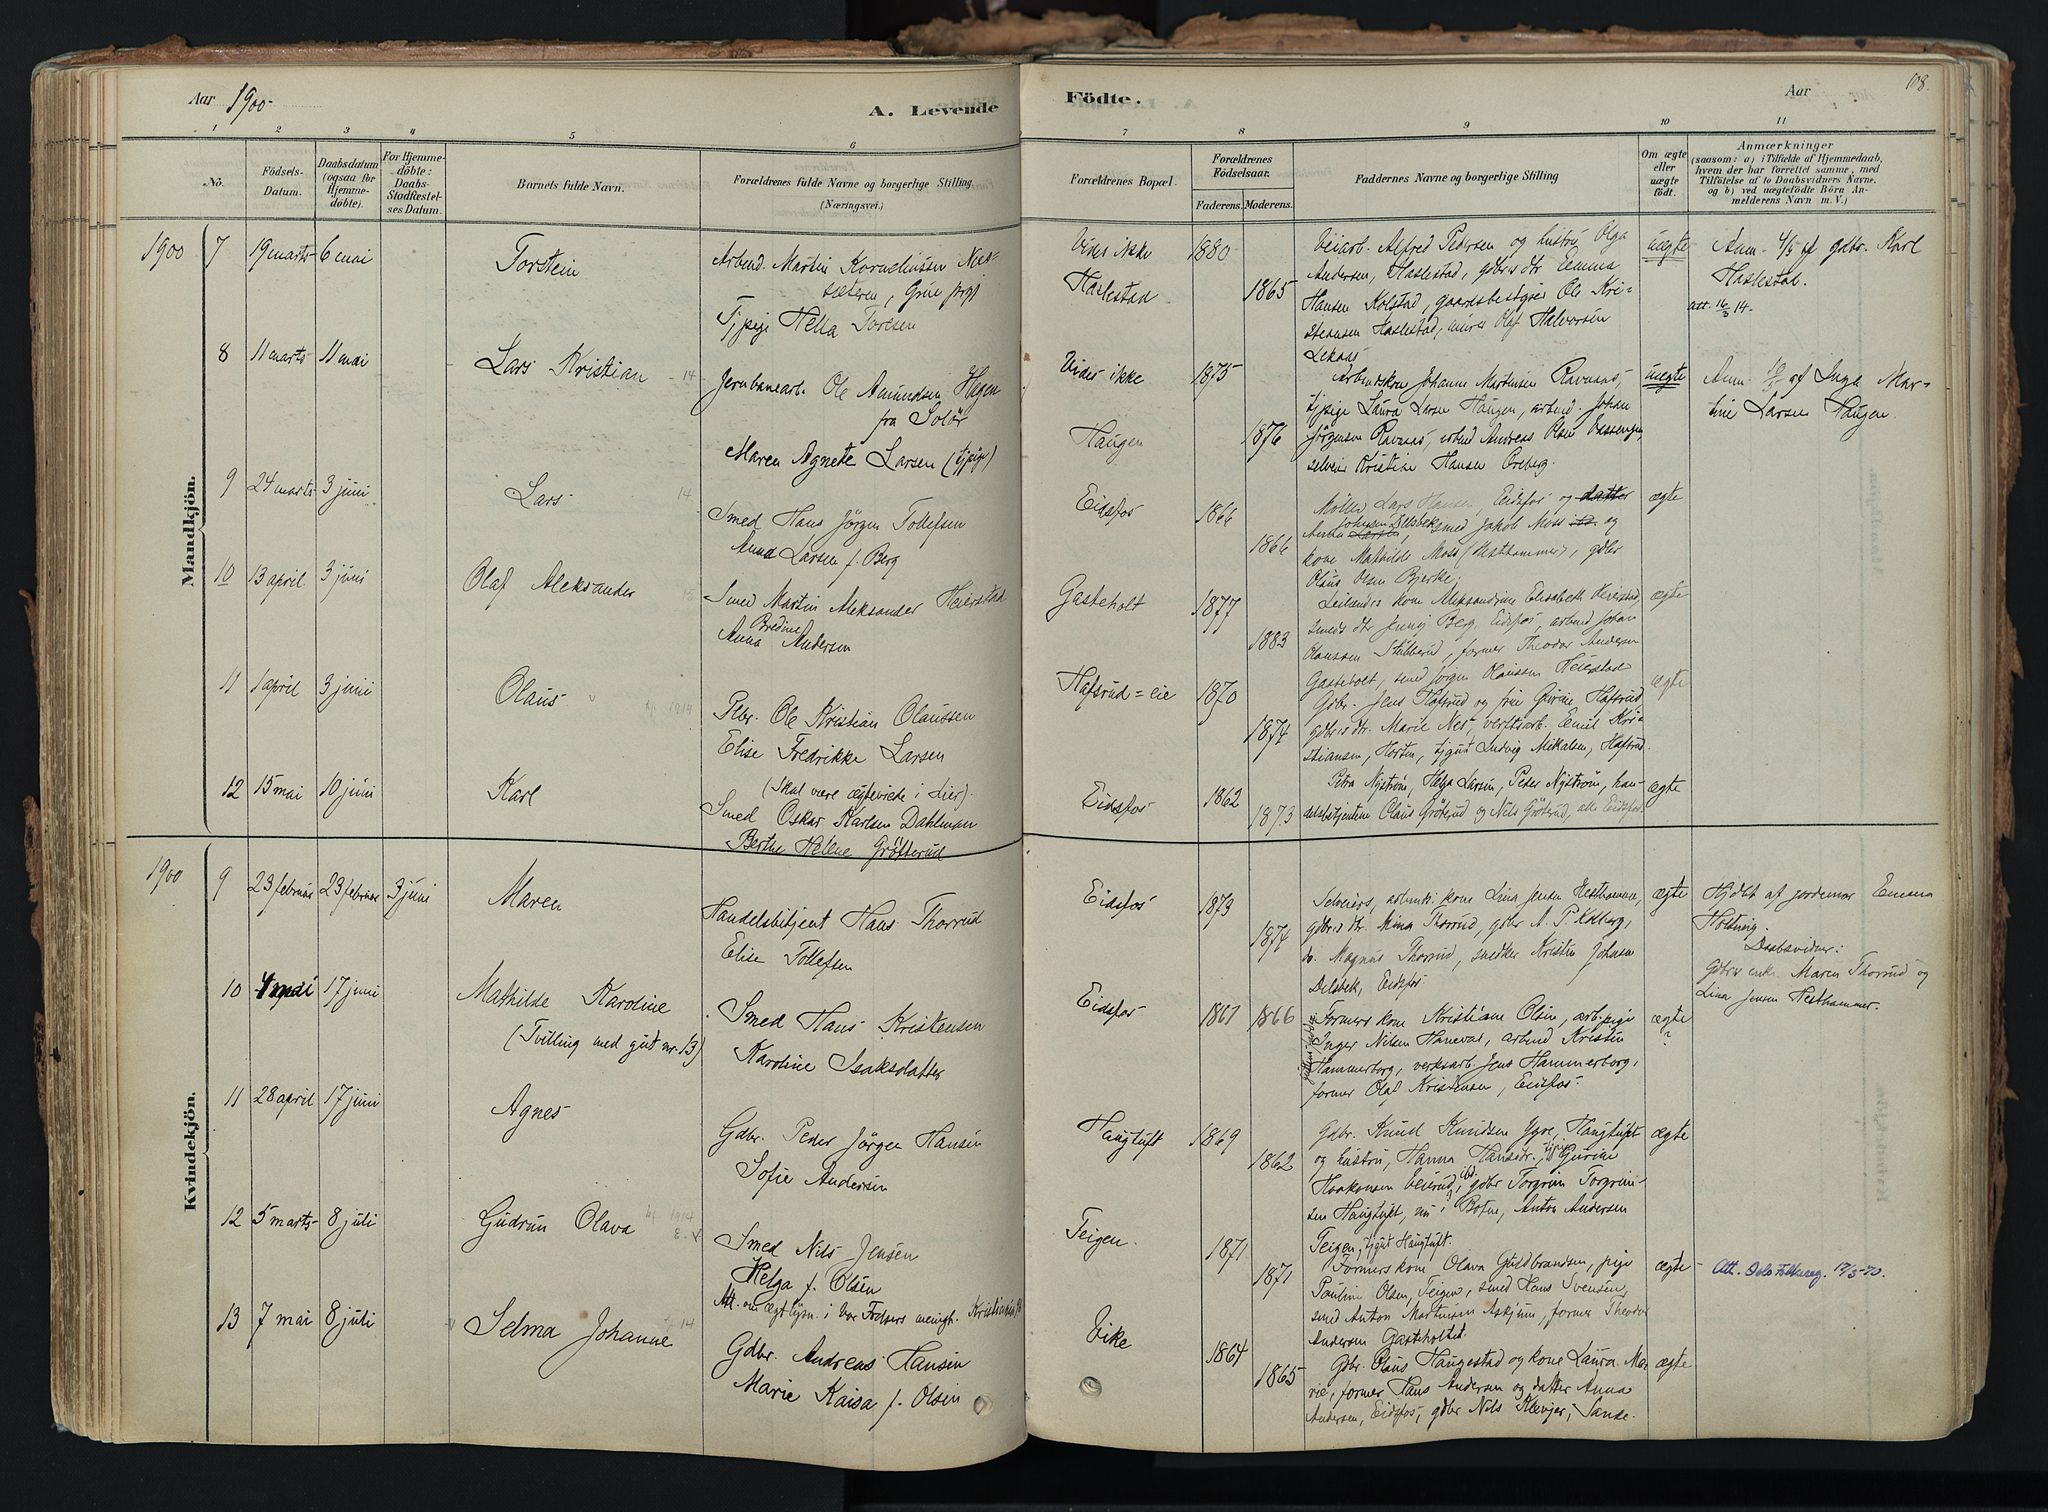 Aar 1900.
A. Levende
Födte.
Aar
108.
1 2 3 4 5 6 7 8 9 10 11
No.
Födsels-Datum.
Daabsdatum (ogsaa for Hjemmedöbte).
For Hjemmedöbte: Daabs-Stadfæstelses Datum.
Barnets fulde Navn.
Forældrenes fulde Navne og borgerlige Stilling.
(Næringsvei.)
Forældrenes Bopæl.
Forældrenes Födselsaar.
Faderens. Moderens.
Faddernes Navne og borgerlige Stilling
Om ægte eller uægte födt.
Anmærkninger
(saasom: a) i Tilfælde af Hjemmedaab,
hvem der har forrettet samme, med
Tilföielse af to Daabsvidners Navne.
og b) ved uægtefödte Börn Anmelderens
Navn m. V.)
Mandkjön.
1900 7 19 marts 6 mai Torstein
Arbeid. Martin Korneliussen
sæteren, Grue prgj
Tjpige Helka Torsen
Vides ikke 1880
Haslestad 1865
Veiarb. Alfred Pedersen og hustru Olga
Andersen, Haslestad, gdbrs dtr Emma
Hansen Kolstad, gaardsbestyrer Ole Kri-
stiansen Haslestad, murer Olaf Halvorsen
Lekaas
uægte
Anm. 4/5 af gdbr. Karl
Haslestad.
att. 16/3 14.
8 11 marts 11 mai Lars Kristian 14
Jernbanearb. Ole Amundsen Hagen
fra Solör
Maren Agnete Larsen (tjpige)
Vides ikke 1875
Haugen 1876
Arbeidskone Johanne Martinsen Ravnaas,
tjpige Laura Larsen Haugen, arbeid. Johan
Jörgensen Ravnaas, arbeid Andreas Olsen
selveier Kristine Hansen Oreberg.
uægte
Anm. 10/5 af Inga Mar-
tine Larsen Haugen.
9 24 marts 3 juni Lars 14
Smed Hans Jörgen Tollefsen
Anna Larsen f. Berg
Eidsfos 1866
1866
Möller Lars Hansen, Eidsfos og datter
Anna Larsen, Johansen Delsbek, smed Jakob Moss og
kone Mathilde Moss (Hesthammer), gdbr
Olaus Olsen Bjerke,
ægte
10 13 april 3 juni Olaf Aleksander
Smed Martin Aleksander Heierstad
Anna Bredine Andersen
Gasteholt 1877
1883
Leilændis kone Aleksandrine Elisabeth Heierstad,
smeds dtr Jenny Berg, Eidsfos, arbeid Johan
Olaussen Stubberud, former Theodor Andersen
Gasteholt, smed Jörgen Olaussen Heierstad
ægte
11 1 april 3 juni Olaus kf 1914
Plbr. Ole Kristian Olaussen
Elise Fredrikke Larsen
(Skal være ægteviede i Lier).
Hafsrud-eie 1870
1874
Gdbr. Jens Hafsrud og frue Gurine Hafsrud
gdbrs dtr. Marie Nes, verftsarb. Emil Kri-
stiansen, Horten, tjgut Ludvig Mikalsen, Hafsrud.
ægte
12 15 mai 10 juni Karl
Smed Oskar Karlsen Dahlman
Berthe Helene Gröfterud
Eidsfos 1862
1873
Petra Nyström, Helga Larsen, Peter Nyström, han-
delsbetjentene Olaus Gröterud og Nils Gröterud, alle Eidsfos.
ægte
Kvindekjön.
1900 9 23 februar 23 februar 3 juni Maren
Handelsbetjent Hans Thorrud
Elise Tollefsen
Eidsfos 1873
1874
Selveiers, arbeids. kone Lina Jensen Hesthammer,
Gdbrs dtr. Mina Thorrud, gdbr A. P. Kolberg,
do. Magnus Thorrud, snedker Kristen Johnsen
Delsbek, Eidsfos.
ægte
Hjdbt af jordemor Emma
Holtsning.
Daabsvidner:
Gdbrs enke Maren Thorrud og
Lina Jensen Hesthammer.
10 4 mai 17 juni Mathilde Karoline
(Tvilling med gut nr 13)
Smed Hans Kristensen
Karoline Isaksdatter
Eidsfos 1867 1866
Formers kone Kristiane Olsen, arb. pige
Inger Nilsen Hanevas, arbeid Kristen
Hammerborg, verksarb. Jens Hammerborg,
former Olaf Kristensen, Eidsfos.
ægte
?
11 28 april 17 juni Agnes
Gdbr. Peder Jörgen Hansen
Sofie Andersen
Haugtuft 1869
1862
Gdbr. Knud Knudsen Jyre, Haugtuft
og hustru, Hanna Hansdr. tjpige Gurine
Haakonsen ibd. gdbr Torgrim Torgrim-
sen Haugtuft, nu i Botne, Anton Andersen
Teigen, tjgut Haugtuft.
ægte
12 5 marts 8 juli Gudrun Olava kf 1914
Smed Nils Jensen
Helga f. Olsen
Teigen. 1871
1871
Formers kone Olava Guldbrandsen, pige
Pauline Olsen, Teigen, smed Hans Svensen,
smed Anton Martinsen Askjum, former Theodor
Andersen Gasteholtet.
ægte
Att. Oslo Folkereg. 17/3-70.
13 7 mai 8 juli Selma Johanne 14
Gdbr. Andreas Hansen
Marie Kaisa f. Olsen
Eike 1864
1865
Gdbr. Olaus Haugestad og kone Laura Ma-
rie, former Hans Andersen og datter Anna
Andersen, Eidsfos, gdbr Nils Klevjer, Sande.
ægte